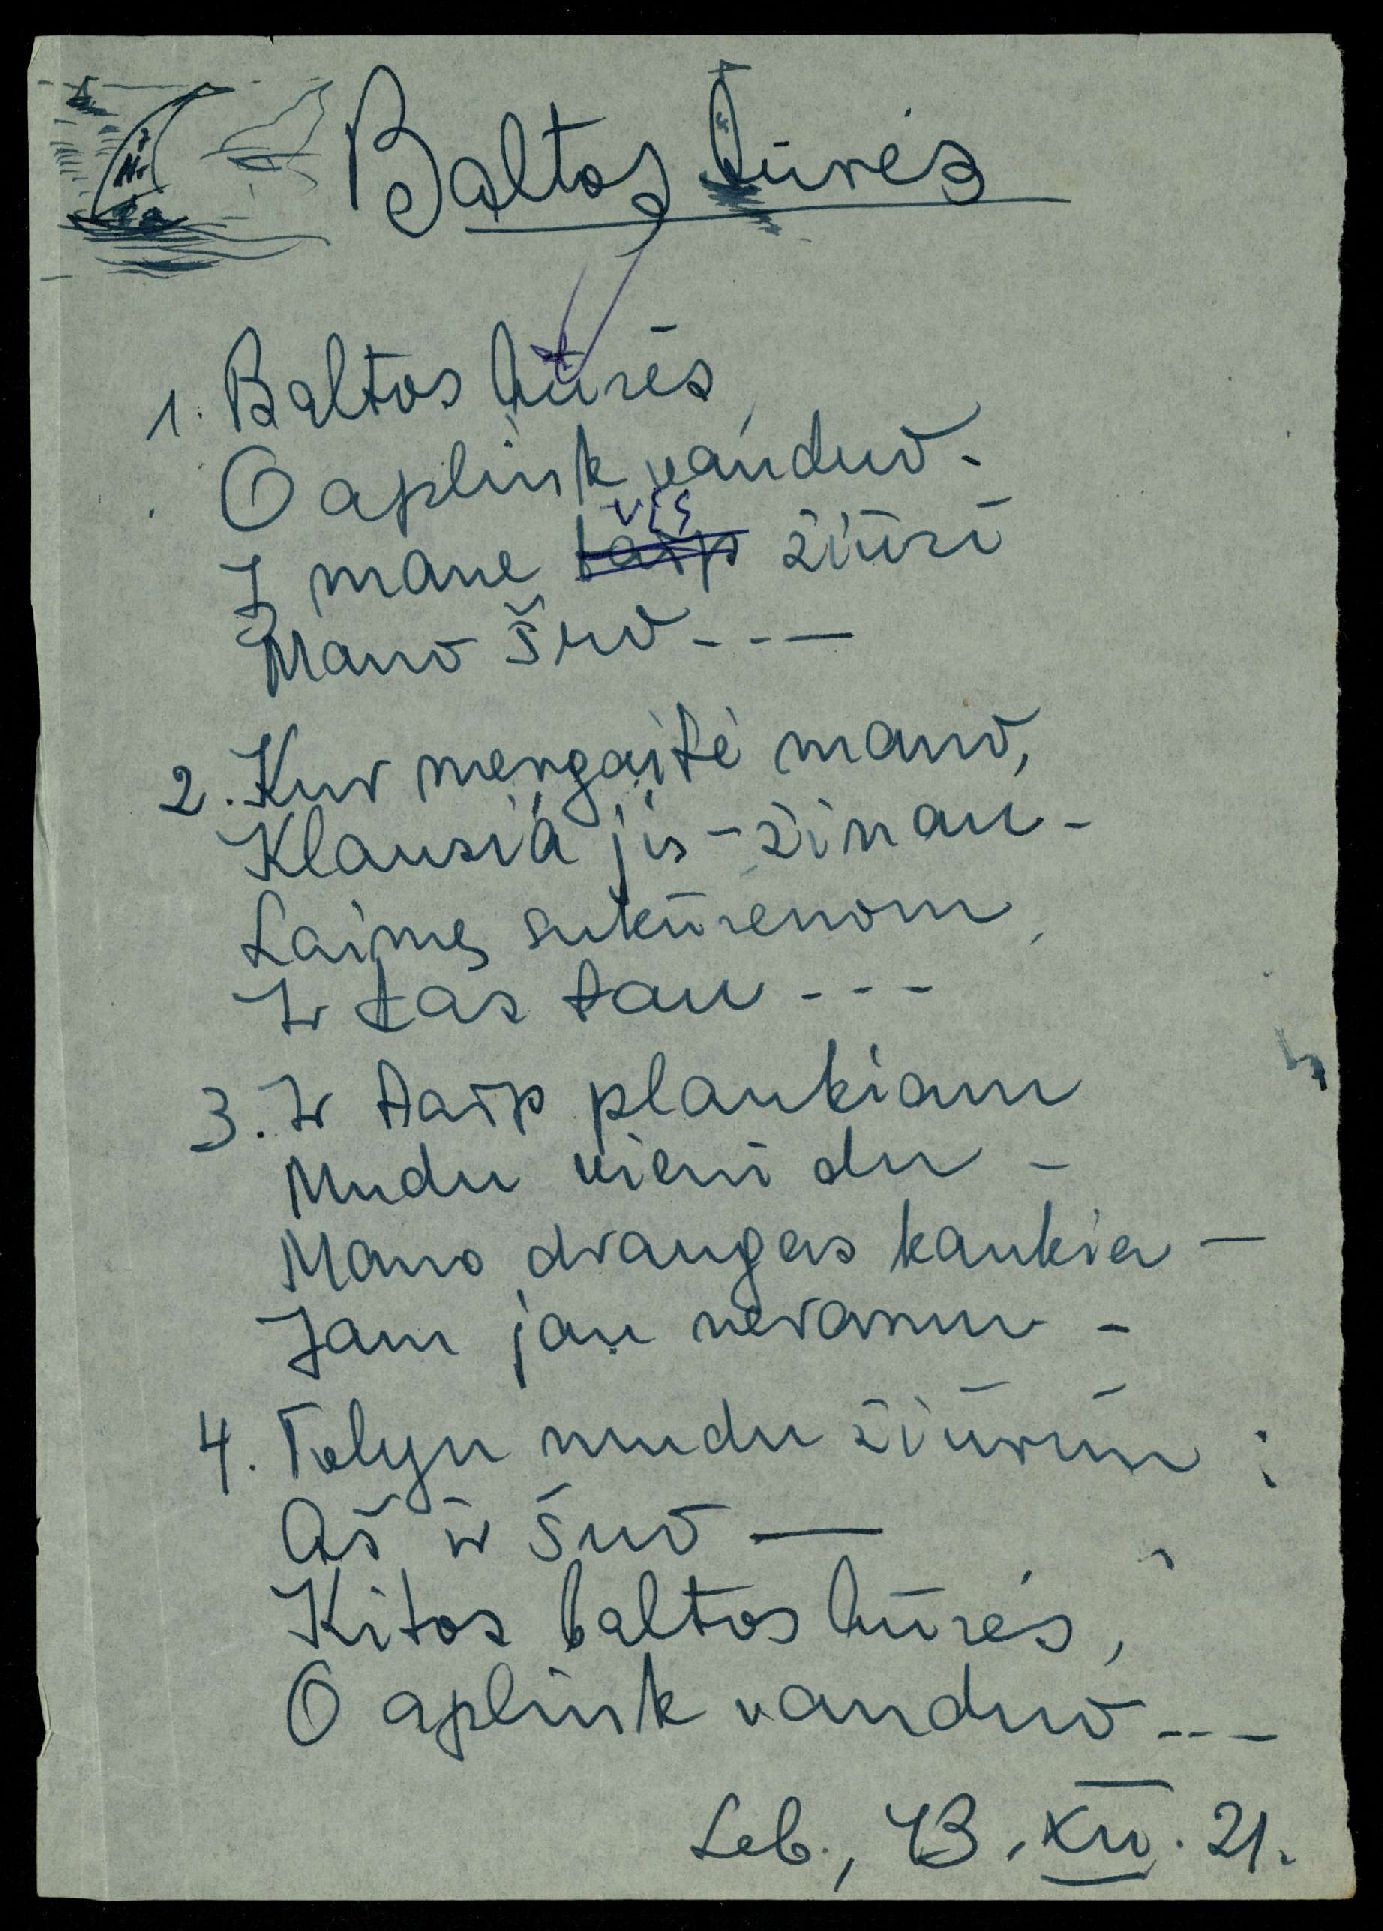 Baltos būrės
1. Baltos būrės,
O aplink vanduo.
Į mane vis žiūri
Mano šuo - - —
2. Kur mergaitė mano,
Klausia jis – žinau –
Laimę sukūrenom,
Ir tas tau - - -
3. Ir taip plaukiam
Mudu vieni du –
Mano draugas kaukia –
Jam jau neramu –
4. Tolyn mudu žiūrim :
Aš ir šuo —
Kitos baltos būrės,
O aplink vanduo - - -
Leb., 43. XII. 21.